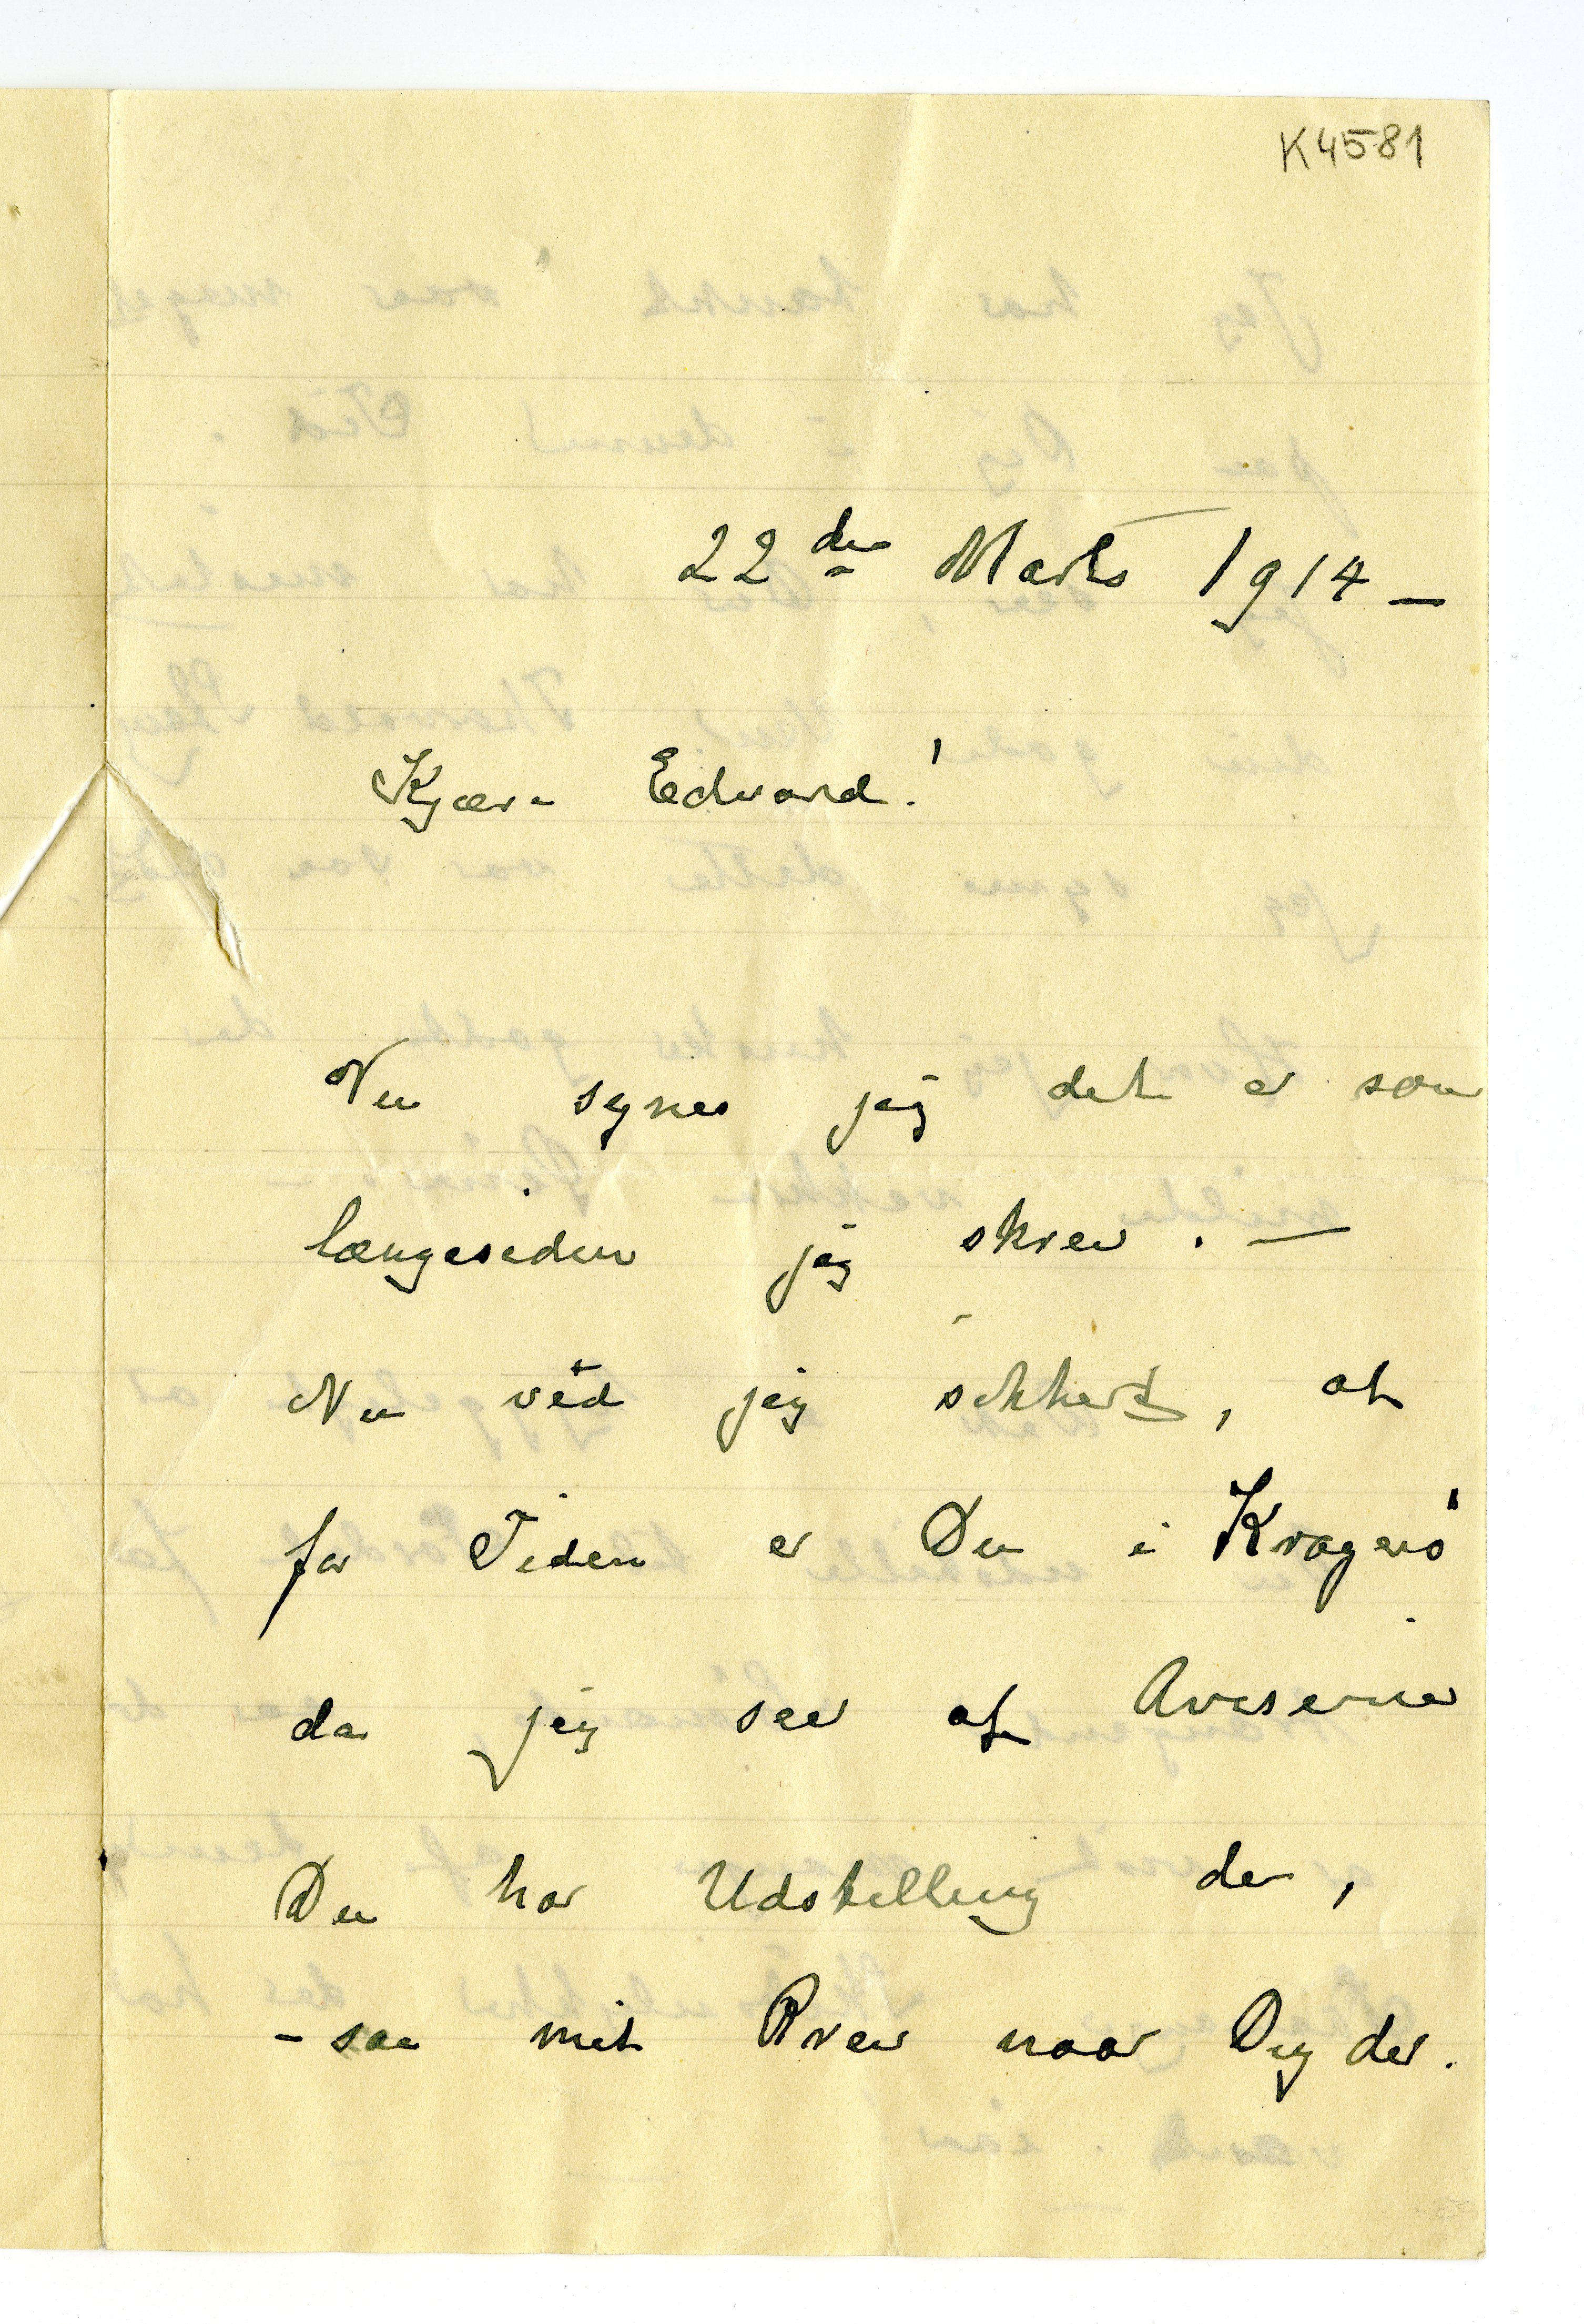 K4581
22den Marts 1914 –
Kjære Edvard!
Nu synes jeg det er saa
længesiden jeg skrev. –
Nu véd jeg sikkert, at
for Tiden er Du i Kragerø
da jeg seer af Aviserne
Du har Udstilling der,
– saa mit Brev naar Dig der.